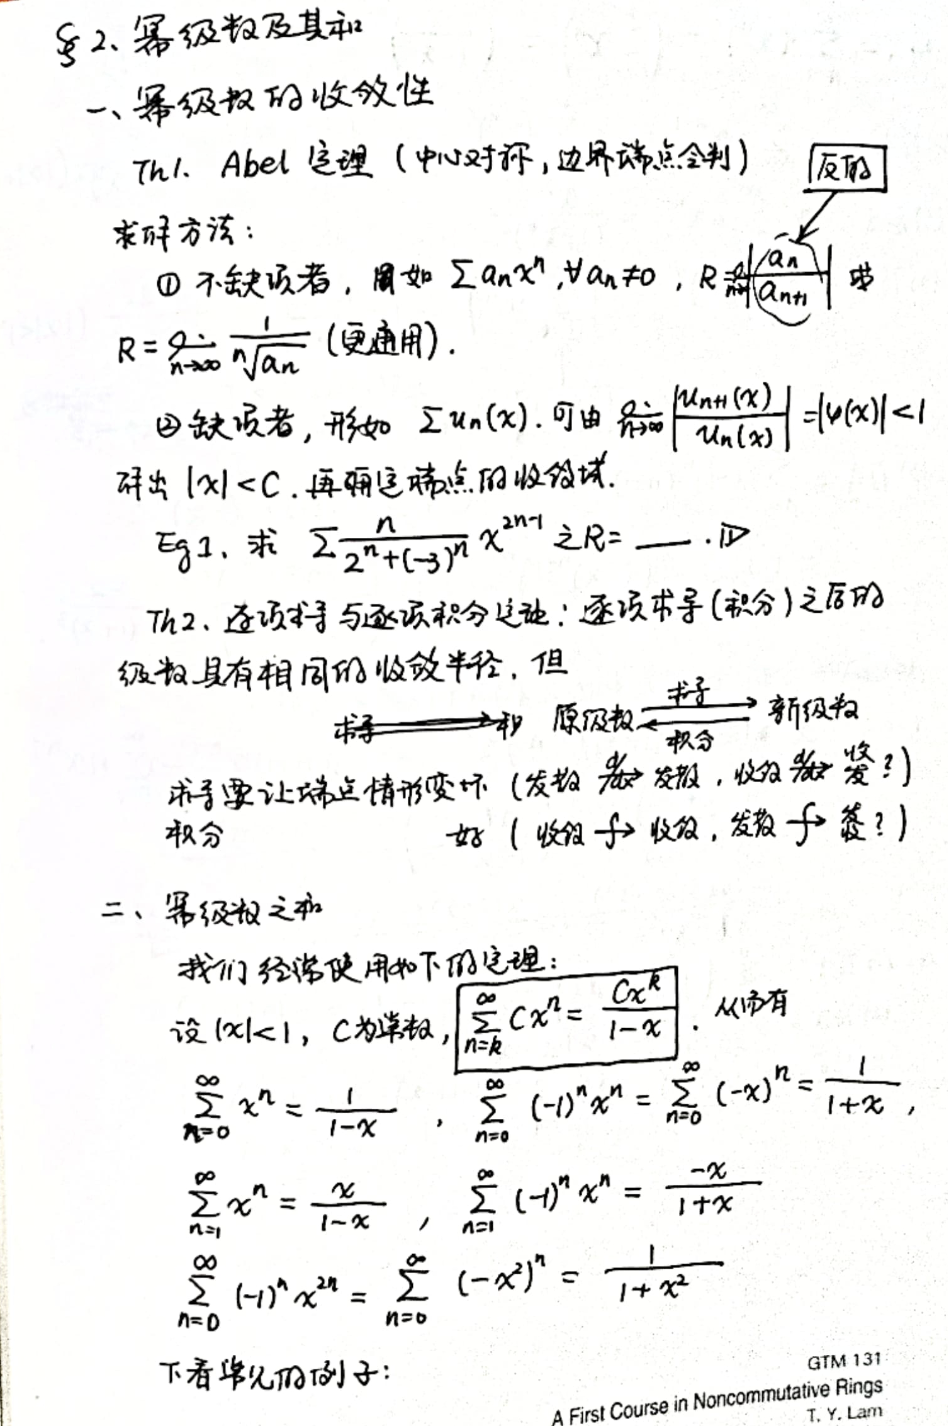 §2、幂级数及其和
一、幂级数的收敛性
Th1. Abel 定理 (中心对称,边界端点全判)
反的
求R方法:
① 不缺项者, 如 ∑anxⁿ, ∀an≠0, R=lim n→∞ |an/an+1| 或
R=lim n→∞ 1/ⁿ√an (更通用).
② 缺项者, 形如 ∑un(x). 可由 lim n→∞ |un+1(x)/un(x)| =|φ(x)|<1
研出 |x|<C. 再确定端点的收敛域.
Eg1、求 ∑ n/(2ⁿ+(-3)ⁿ) x²ⁿ⁻¹ 之R= ___ .
Th2、逐项求导与逐项积分定理: 逐项求导(积分)之后的
级数具有相同的收敛半径, 但
原级数 求导→ ←积分 新级数
求导要让端点情形变坏 (发散 → 发散, 收敛 → ?)
积分 好 ( 收敛 ∫→ 收敛, 发散 ∫→ ?)
二、幂级数之和
我们经常使用如下的定理:
设|x|<1, C为常数, ∑(n=k→∞) Cxⁿ = Cxᵏ/(1-x). 从而有
∑(n=0→∞) xⁿ = 1/(1-x), ∑(n=0→∞) (-1)ⁿxⁿ = ∑(n=0→∞) (-x)ⁿ = 1/(1+x),
∑(n=1→∞) xⁿ = x/(1-x), ∑(n=1→∞) (-1)ⁿxⁿ = -x/(1+x)
∑(n=0→∞) (-1)ⁿx²ⁿ = ∑(n=0→∞) (-x²)ⁿ = 1/(1+x²)
下看常见的例子:
GTM 131
A First Course in Noncommutative Rings
T. Y. Lam